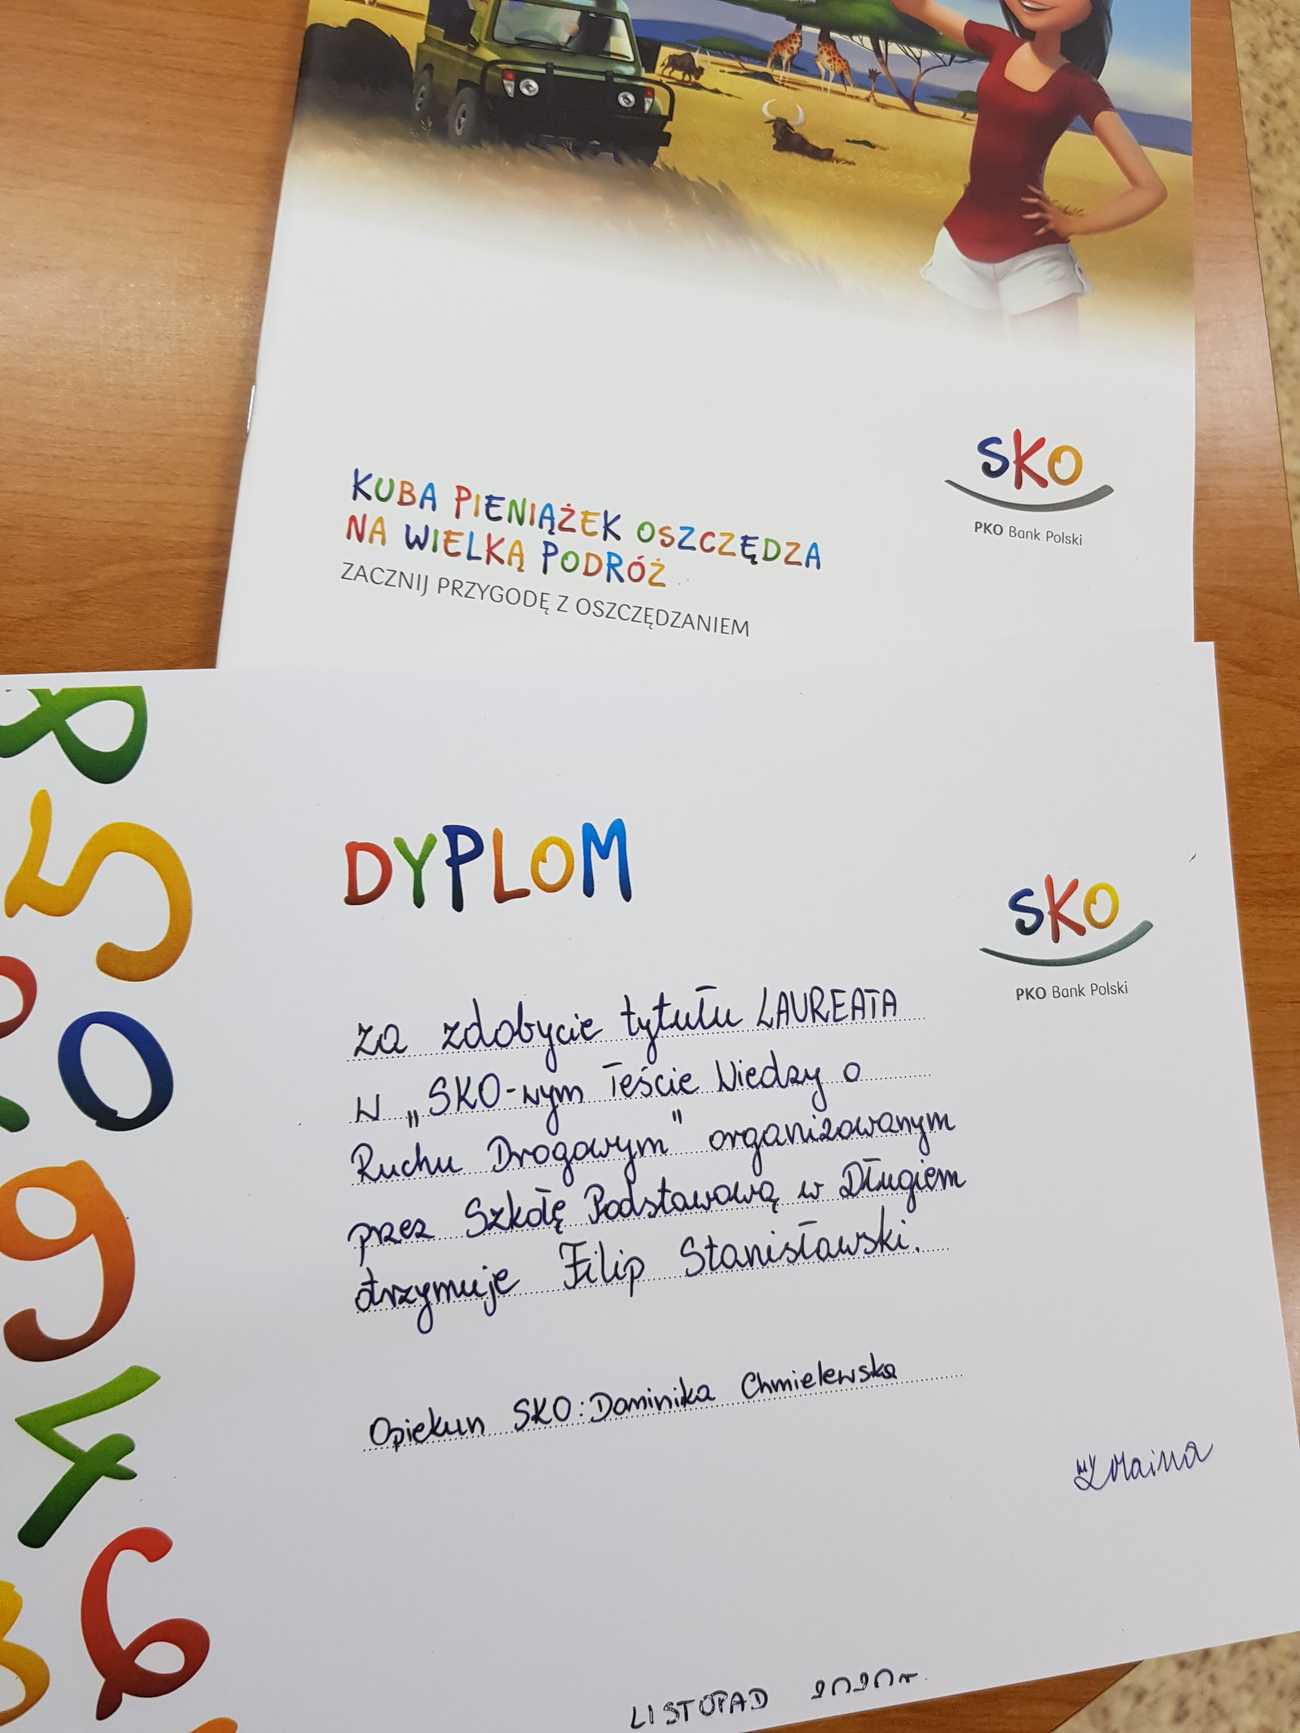 SKO
PKO Bank Polski
KUBA PIENIĄŻEK OSZCZĘDZA
NA WIELKĄ PODRÓŻ
ZACZNIJ PRZYGODĘ Z OSZCZĘDZANIEM
8
5
0
9
4
6
DYPLOM
SKO
PKO Bank Polski
za zdobycie tytułu LAUREATA
w „SKO-wym Teście Wiedzy o
Ruchu Drogowym" organizowanym
przez Szkołę Podstawową w Długiem
otrzymuje Filip Stanisławski.
Opiekun SKO: Dominika Chmielewska
LISTOPAD 2020r.